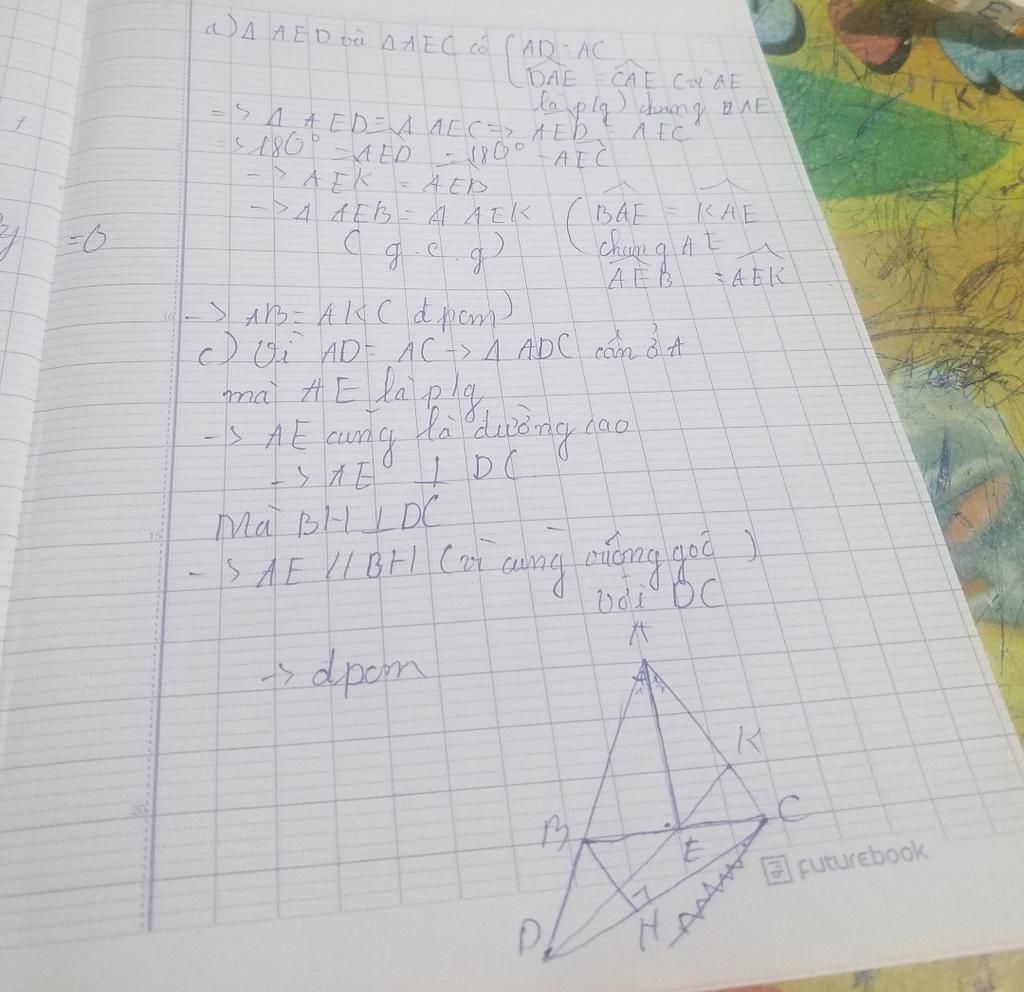 a) Δ AED và Δ AEC có { AD = AC
DAE = CAE (vì AE
là p/g) chung AE
=> Δ AED = Δ AEC => AED = AEC
=> 180° - AED = 180° - AEC
-> AEK = AEB
-> Δ AEB = Δ AEK ( BAE = KAE
( g.c.g) chung AE
AEB = AEK
=0
-> AB = AK ( đpcm)
c) Vì AD = AC -> Δ ADC cân ở A
mà AE là p/g
-> AE cũng là đường cao
-> AE ⊥ DC
Mà BH ⊥ DC
-> AE // BH (vì cùng vuông góc )
với DC
-> đpcm
A
K
B
C
E
D
H
futurebook
10
15
20
K
E